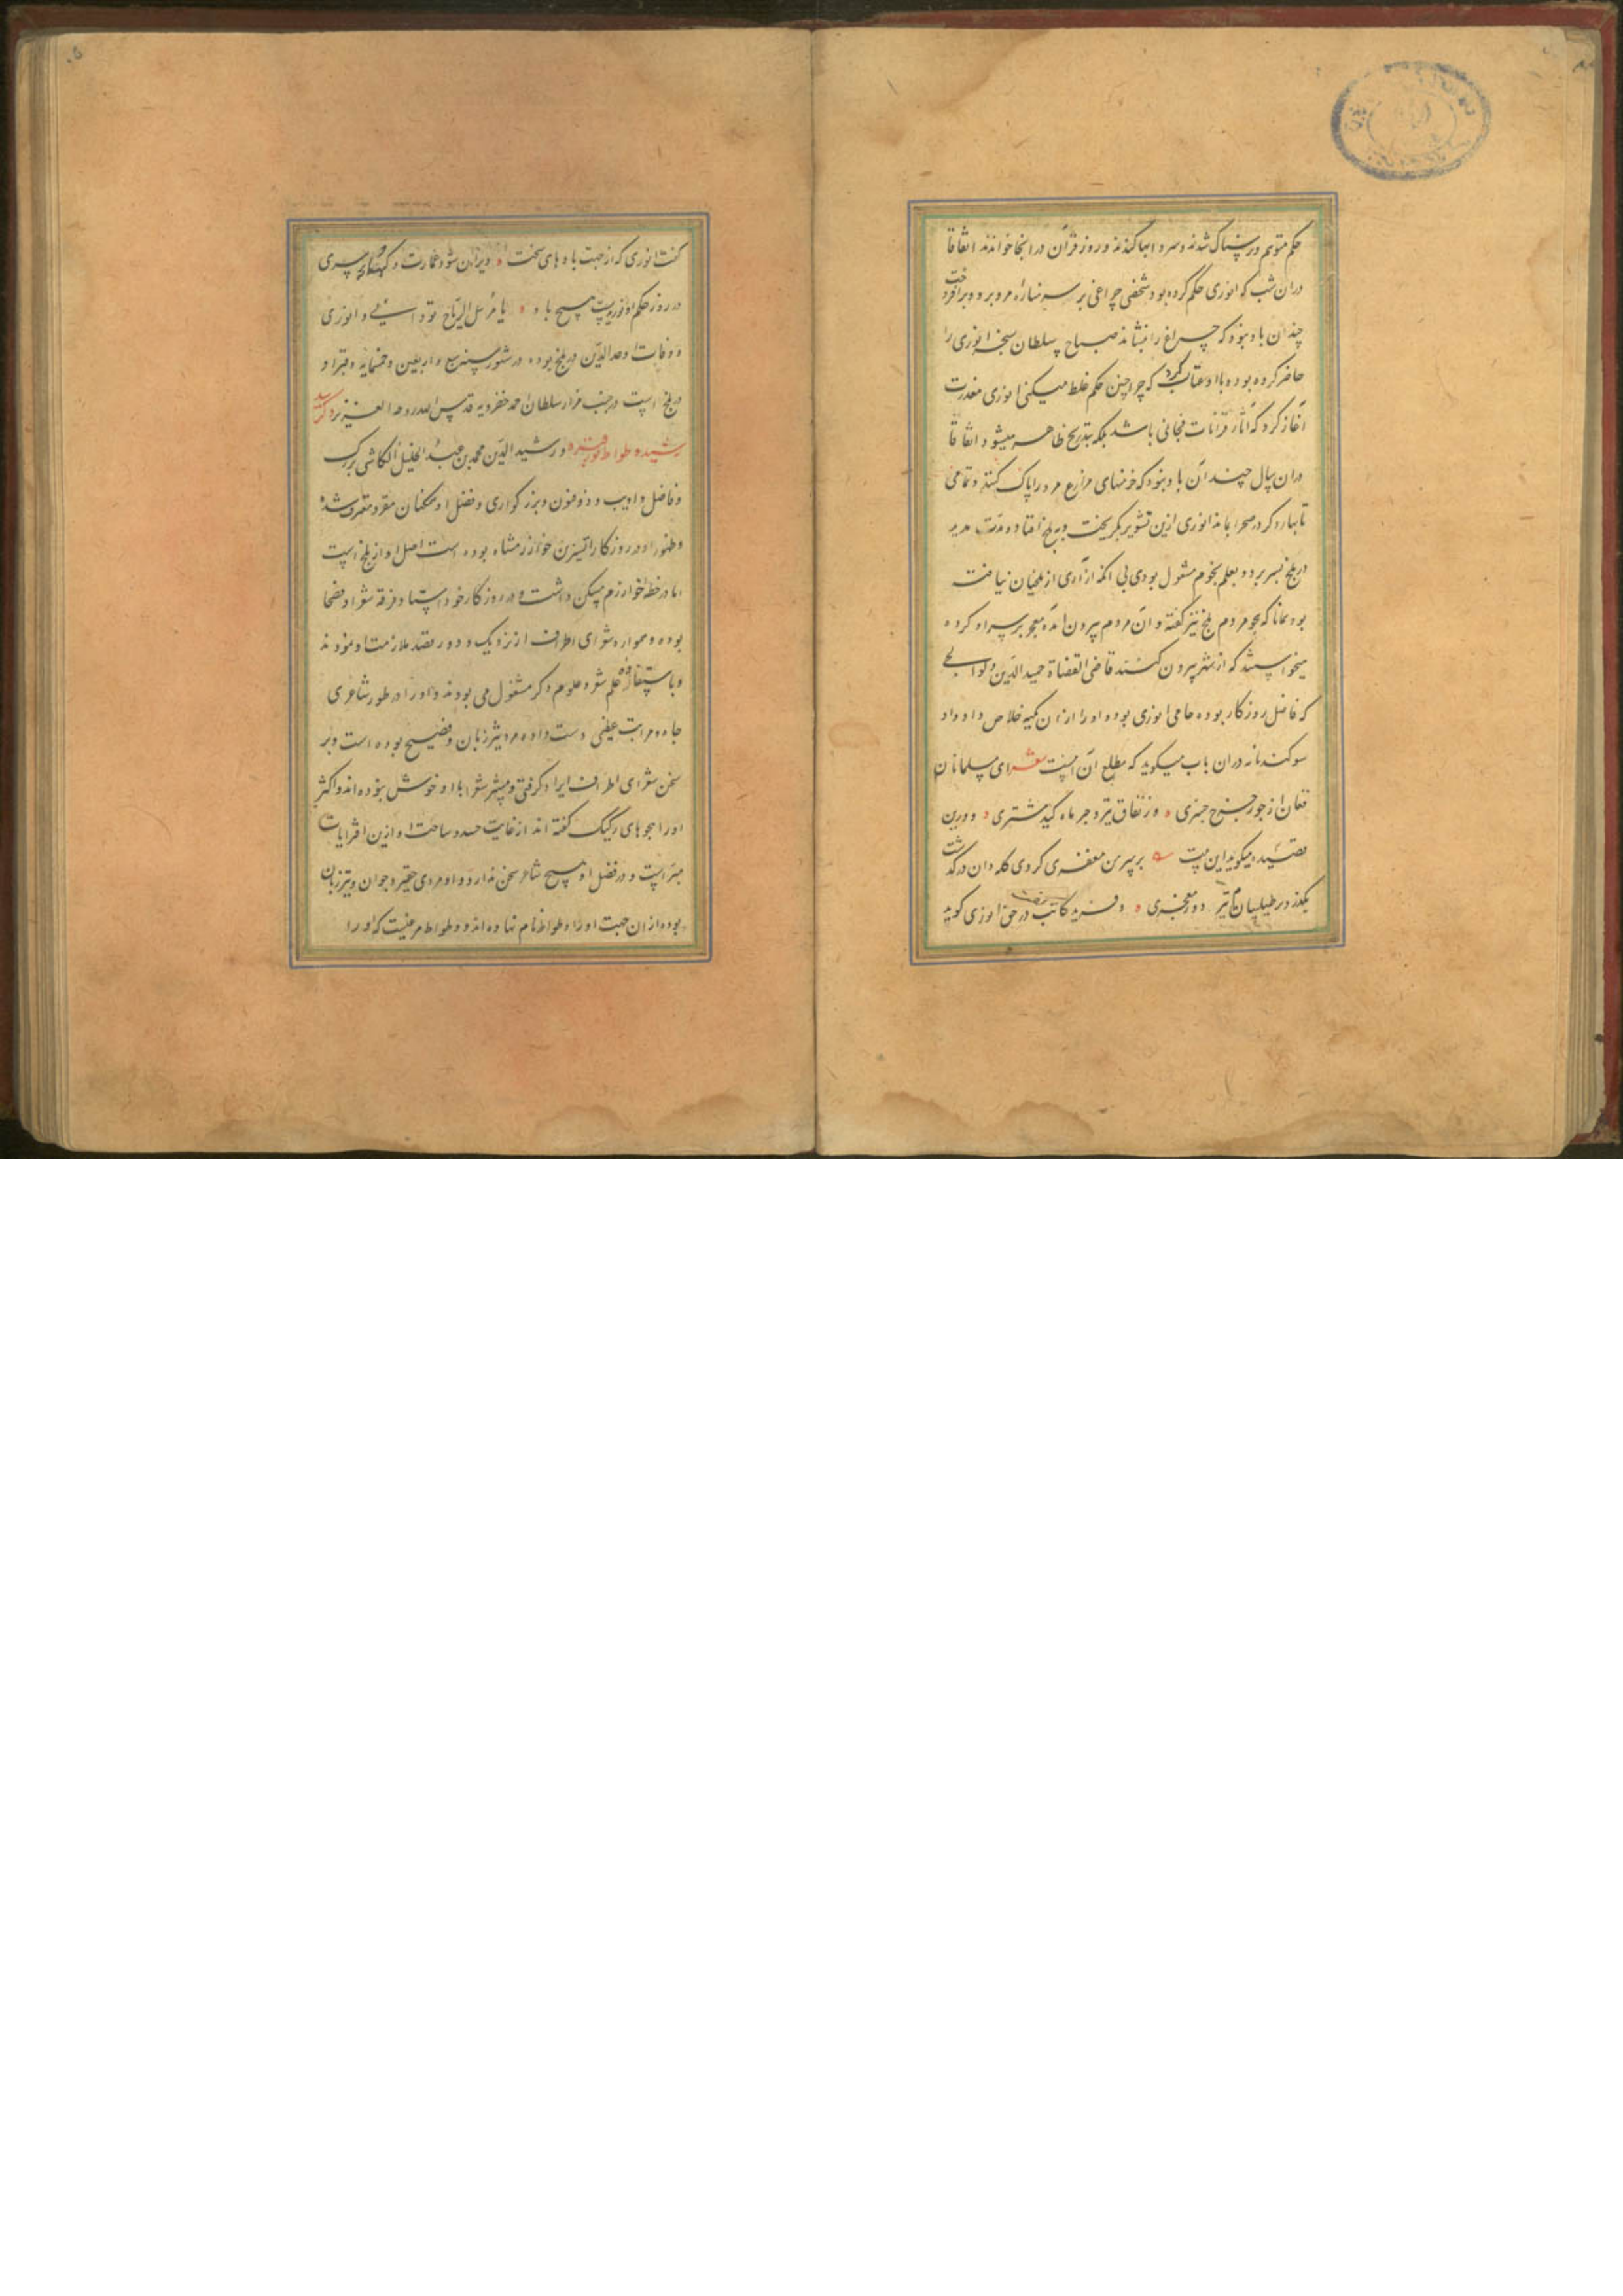 حکم متوهم و ترسناک شدند و سردابها کندند و روز قرآن در انجا خواندند اتفاقا
دران شب که انوری حکم کرده بود شخصی چراغی بر سر مناره مرو برد و برافروخت
چندان باد نبود که چراغ را بنشاند صباح سلطان سنجر انوری را
حاضر کرده بود و با او عتاب کرد که چرا چنین حکم غلط میکنی انوری معذرت
آغاز کرد که آثار قرانات فجائی باشد بلکه بتدریج ظاهر میشود اتفاقا
دران سال چندان باد نبود که خرمنهای مزارع مرو را پاک کنند و تمامی
تا بهار دکر در صحرا بماند انوری ازین تشویر بکریخت و به بلخ افتاد و مدت مدید
در بلخ بسر برد و بعلم نجوم مشغول بودی بی انکه ازاری از بلخیان نیافت
بود همانا که هجو مردم بلخ نیز کفته و آن مردم بیرون امده معجر بر سر او کرده
میخواستند که از شهر بیرون کنند قاضی القضاة حمید الدین ولوالجی
که فاضل روزکار بوده حامی انوری بوده و او را ازان کمیه خلاص داد و او
سوکندنامه دران باب میکوید که مطلع آن اینست شعر ای مسلمانان
فغان از جور چرخ چنبری وز نفاق تیر و جرم ماه کید مشتری و درین
قصیده میکوید این بیت بر سر من مغفری کردی کله وان درکذشت
بکذرد بر طیلسانم نیز دور معجری و فرید کاتب در حق انوری کوید
کفت انوری که از جهت بادهای سخت ویران شود عمارت و کهسار بر سری
در روز حکم او نوزیدست هیچ باد یا مرسل الریاح تو دانی و انوری
و وفات اوحدالدین در بلخ بوده در شهور سنه سبع و اربعین و خمسمایه و قبر او
در بلخ است در جنب مزار سلطان احمد خضرویه قدس الله روحه العزیز ذکر سید
رشید وطواط نور قبره و رشید الدین محمد بن عبد الجلیل الکاشی بزرک
و فاضل و ادیب و ذو فنون و بزرکواری و فضل او همکنان مقر و معترف شده
و ظهور او در روزکار اتسز بن خوارزمشاه بوده است اصل او از بلخ است
اما در خطه خوارزم مسکن داشت و در روزکار خود استاد فرقه شعرا و فصحا
بوده و همواره شعرای اطراف از نزدیک و دور قصد ملازمت او نمودند
و باستفاده علم شعر و علوم دکر مشغول می بودند و او را در طور شاعری
جاه و مراتب عظیمی دست داده مرد تیز زبان و فصیح بوده است و بر
سخن شعرای اطراف ایراد کرفتی و بیشتر شعرا با او خوش نبوده اند و اکثر
او را هجوهای رکیک کفته اند از غایت حسد و ساحت او ازین افترایات
مبراست و در فضل او هیچ شاعر سخن ندارد و او مردی حقیر و جوان و تیز زبان
بوده ازان جهت او را وطواط نام نهاده اند و وطواط مرغیست که او را